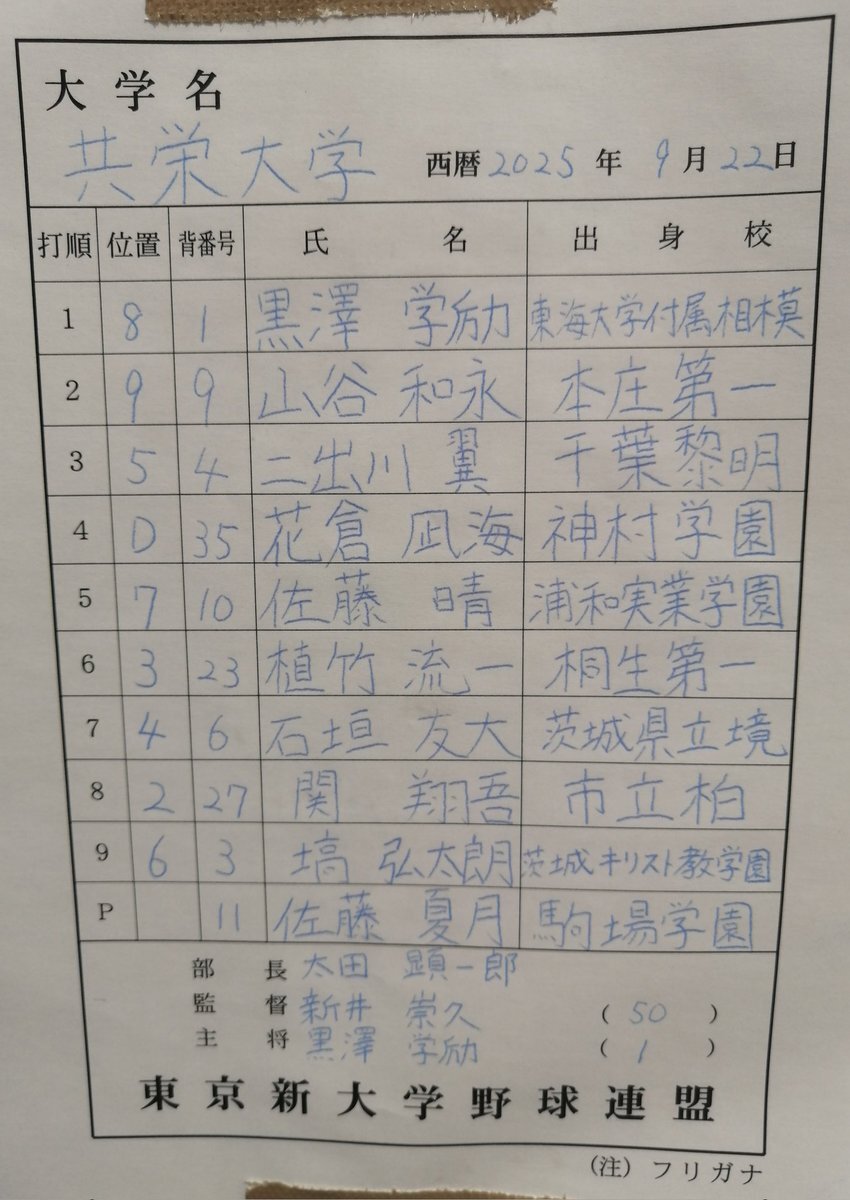 大学名
共栄大学 西暦2025年9月22日
打順 位置 背番号 氏名 出身校
1 8 1 黒澤 学励 東海大学付属相模
2 9 9 山谷 和永 本庄第一
3 5 4 二出川 翼 千葉黎明
4 D 35 花倉 凪海 神村学園
5 7 10 佐藤 晴 浦和実業学園
6 3 23 植竹 流一 桐生第一
7 4 6 石垣 友大 茨城県立境
8 2 27 関 翔吾 市立柏
9 6 3 塙 弘太朗 茨城キリスト教学園
P 11 佐藤 夏月 駒場学園
部長 太田 顕一郎
監督 新井 崇久 (50)
主将 黒澤 学励 (1)
東京新大学野球連盟
(注)フリガナ